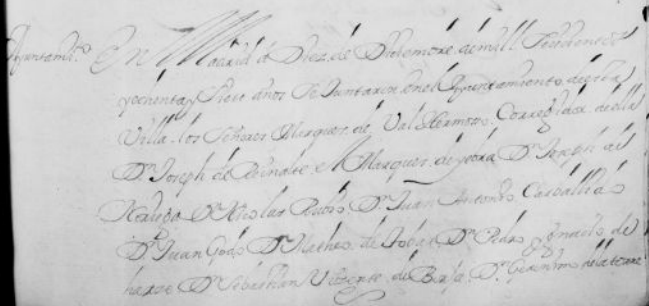 Ayuntamto. En Madrid á Diez de Diziembre de mill Settecientos
y ochenta y Siete años Se Juntaron en el Ayuntamiento de esta
Villa los Señores Marques de Valhermoso Corregidor de ella
Dn. Joseph de el Marques de Dn. Joseph de
Dn. Nicolas Dn. Juan Antonio Carballido
Dn. Juan Godo Dn. Matheo de Tobar Dn. Pedro Ygnacio de
Dn. Sebastian Vizente de Borja Dn. Geronimo de la torre